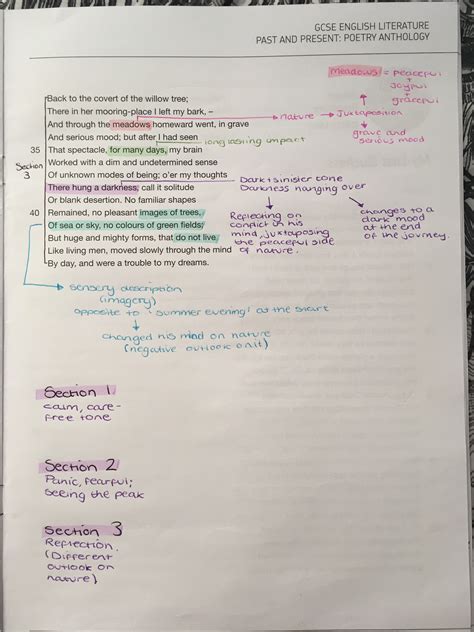 GCSE ENGLISH LITERATURE
PAST AND PRESENT: POETRY ANTHOLOGY
meadows = peaceful
+
joyful
+
graceful
Back to the covert of the willow tree;
There in her mooring-place I left my bark, –
nature → juxtaposition
And through the meadows homeward went, in grave
And serious mood; but after I had seen
grave and
serious mood
long lasting impact
35 That spectacle, for many days, my brain
Section
3
Worked with a dim and undetermined sense
Of unknown modes of being; o'er my thoughts
There hung a darkness, call it solitude
Dark + sinister tone
Darkness hanging over
Or blank desertion. No familiar shapes
40 Remained, no pleasant images of trees,
Of sea or sky, no colours of green fields;
But huge and mighty forms, that do not live
Like living men, moved slowly through the mind
By day, and were a trouble to my dreams.
Reflecting on
conflict in his
mind, juxtaposing
the peaceful side
of nature.
changes to a
dark mood
at the end
of the journey.
sensory description
(imagery)
opposite to 'summer evening' at the start
changed his mind on nature
(negative outlook on it)
Section 1
calm, care-
free tone
Section 2
Panic, fearful;
seeing the peak
Section 3
Reflection.
(Different
outlook on
nature)